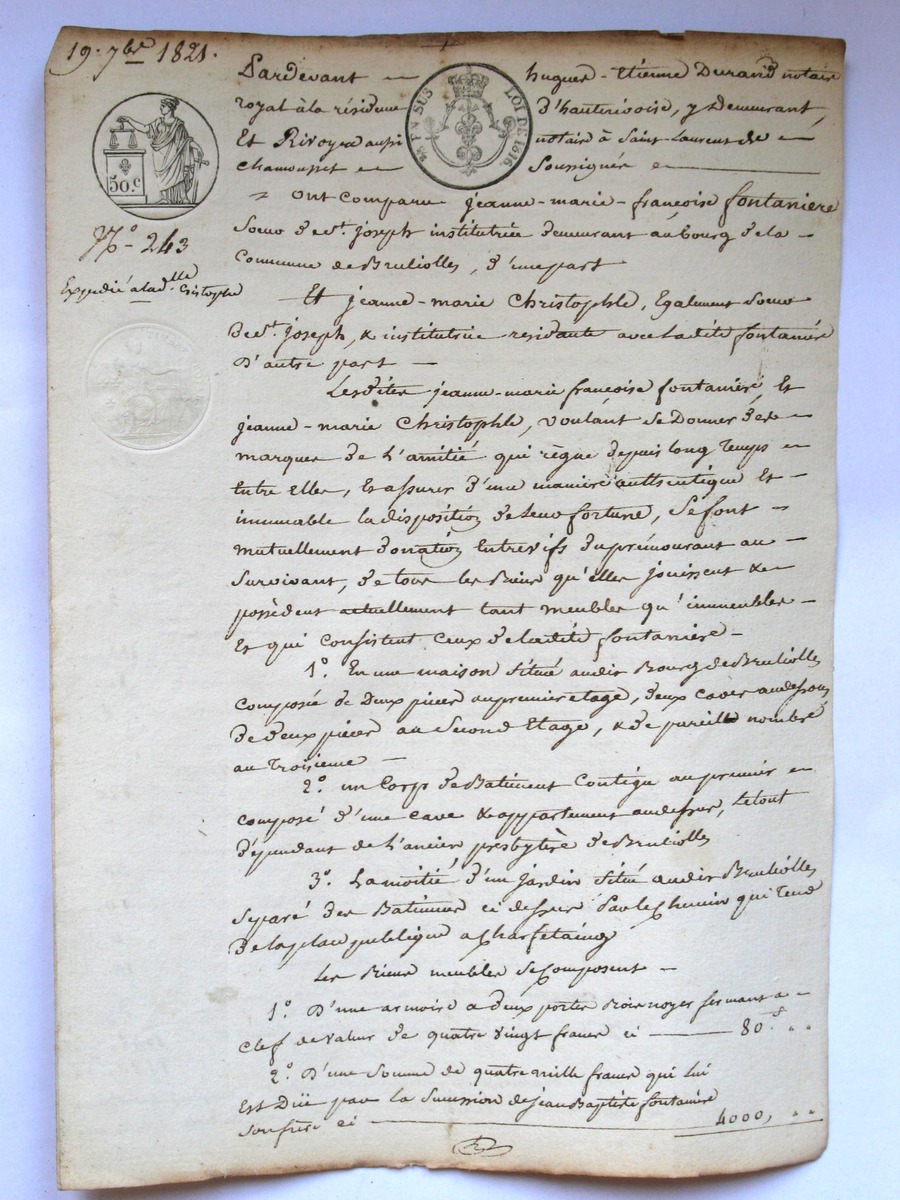 19. 7bre 1821.
Pardevant hugues-Etienne Durand notaire
royal à la résidence d'hauterivoise, y demeurant
Et Rivoyre aussi notaire à Saint-Laurent de
Chamousset Soussignés
50.c
SUS LOI DE 1816
ont comparu jeanne-marie-françoise fontaniere
Soeur de St. joseph institutrice demeurant au bourg de la
Commune de Brullioles, d'une part
N.o 243
Expédié à la dlle Cristophe
Et jeanne-marie Christophle, Egalement Soeur
de St. joseph, & institutrice residante avec la dite fontanière
d'autre part
Lesdites jeanne-marie françoise fontanière, Et
jeanne-marie Christophle, voulant se Donner des
marques de l'amitié qui règne depuis long temps
Entre elles, Et assurer d'une manière authentique Et
immuable la disposition de leur fortune, Se font
mutuellement donation Entrevifs du prémourant au
Survivant, de tous les Biens qu'elles jouissent &
possèdent actuellement tant meubles qu'immeubles
Et qui Consistent Ceux de ladite fontanière
1.o En une maison Située audit Bourg de Brullioles
composée de Deux pièces au premier etage, deux caves au dessous
de deux pièces au Second Etage, & de pareille nombre
au troisieme
2.o un Corps de Batiment Contigu au premier
composé d'une cave & appartement audessus, le tout
dépendant de l'ancien presbytère de Brullioles
3.o La moitié d'un jardin Situé audit Brullioles
Séparé des Batiments ci dessus Par le Chemin qui Tend
de la place publique a
Les Biens meubles se Composent
1.o D'une armoire a deux portes Bois noyer fermant a
clef de valeur de quatre vingt francs ci 80.f
2.o D'une Somme de quatre mille francs qui lui
Est Düe par la Succession de jean Baptiste fontanière
Son frère ci 4000,